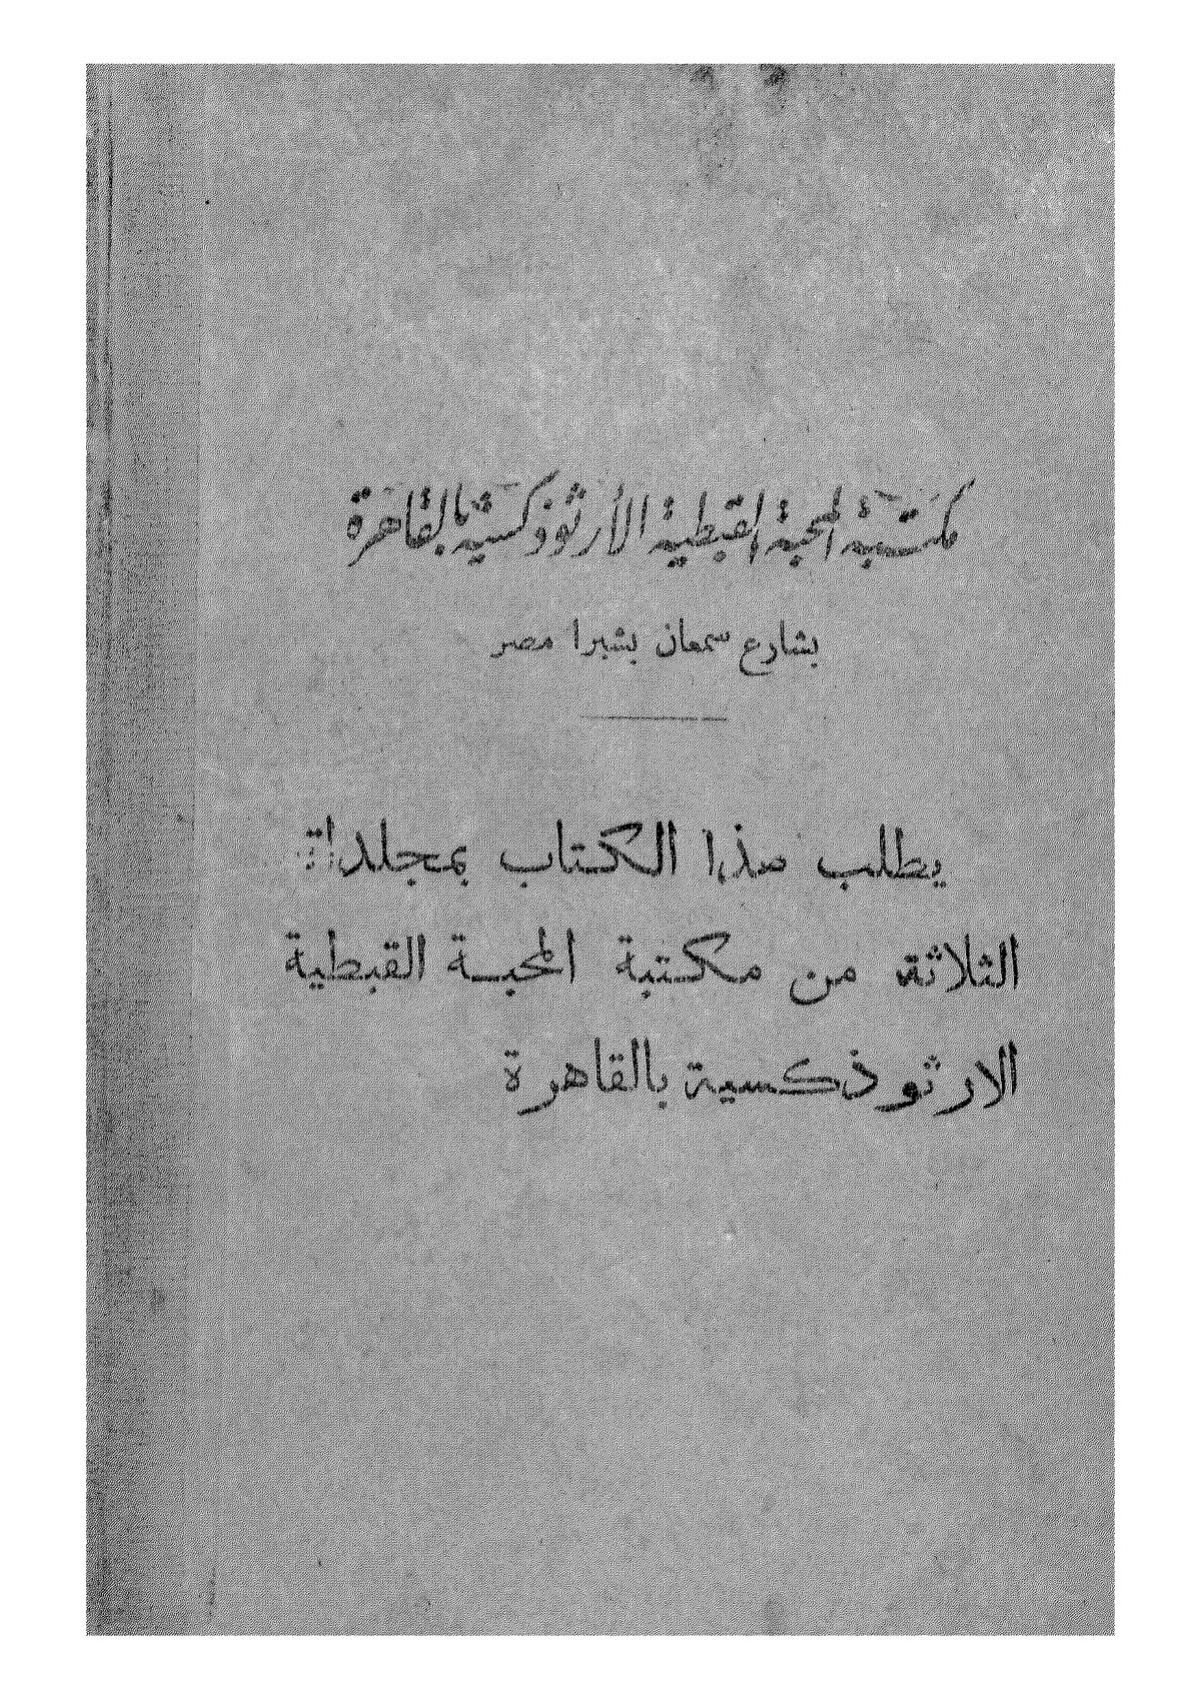 مكتبة المحبة القبطية الأرثوذكسية بالقاهرة
بشارع سمعان بشبرا مصر
يطلب هذا الكتاب بمجلداته
الثلاثة من مكتبة المحبة القبطية
الارثوذكسية بالقاهرة